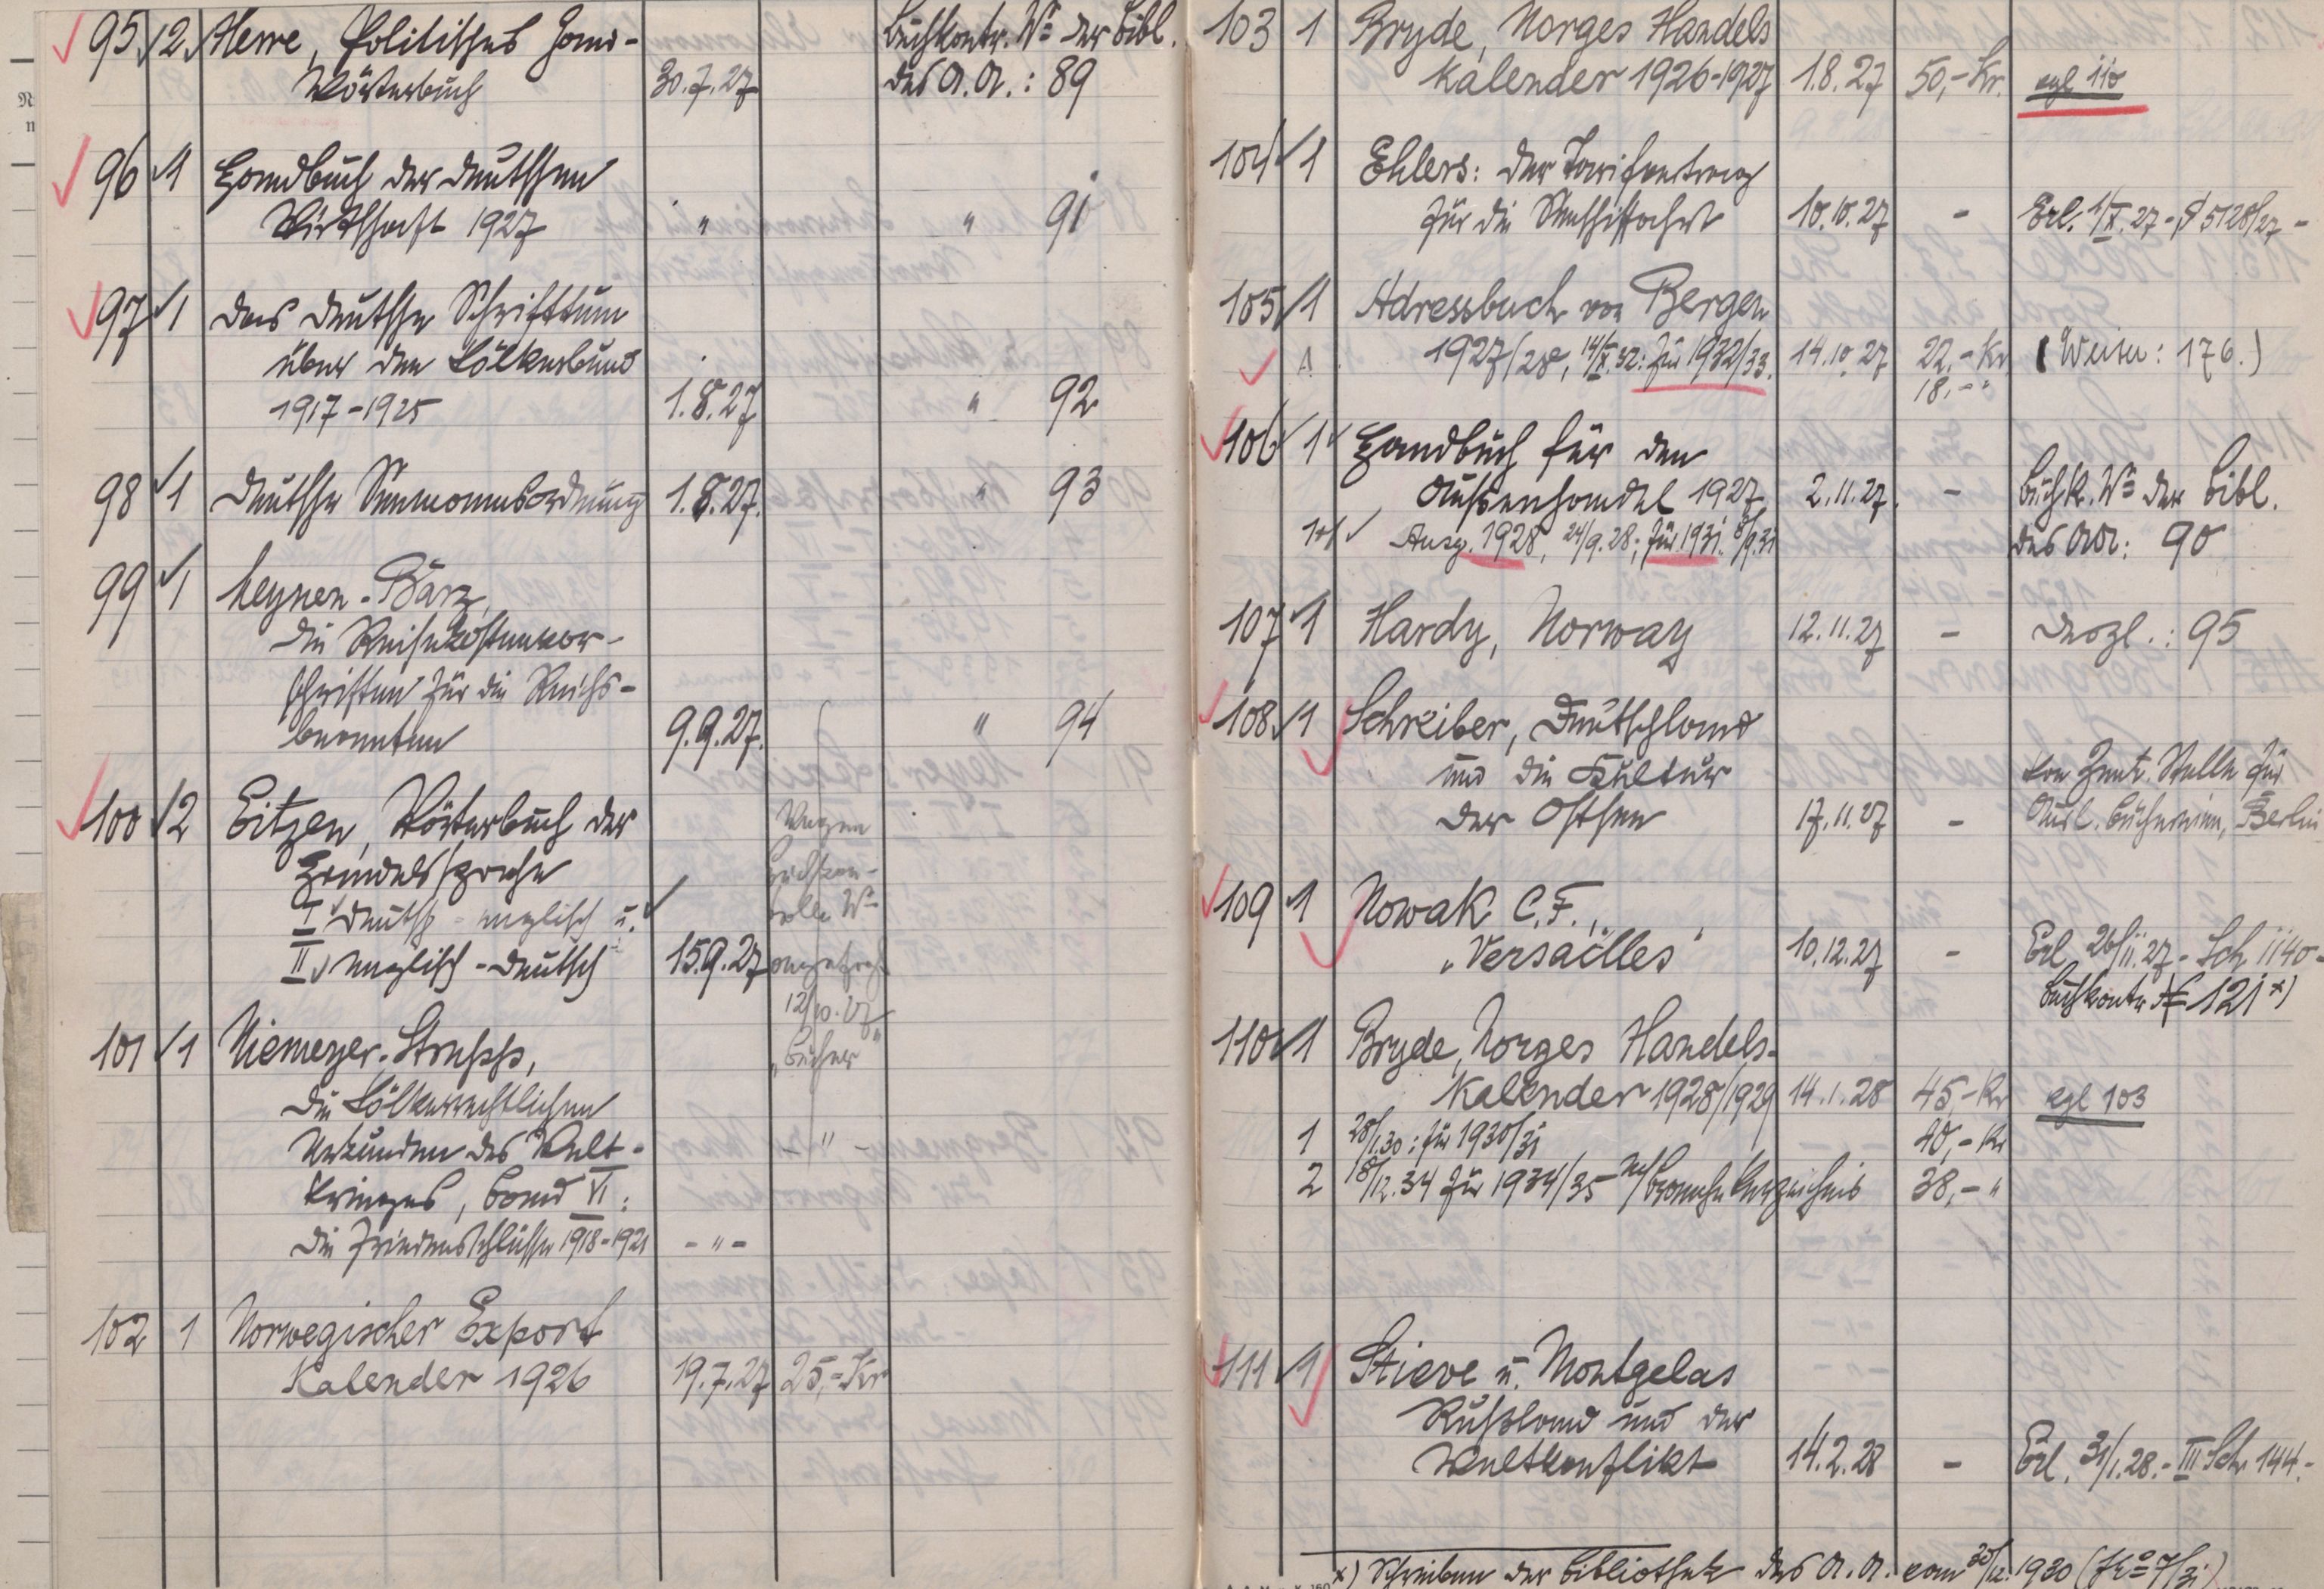 95 2 Herre, Politisches Hand-
wörterbuch 30.7.27 Buchkontr. Nº der Bibl. des A.A.: 89
96 1 Handbuch der deutschen
Wirtschaft 1927 " " 91
97 1 Das deutsche Schrifttum
über den Völkerbund
1917-1925 1.8.27 " 92
98 1 Deutsche Seemannsordnung 1.8.27. " 93
99 1 Heynen-Bärz,
die Reisekostenvor-
schriften für die Reichs-
beamten 9.9.27. " 94
100 2 Eitzen, Wörterbuch der
Handelssprache
I deutsch-englisch u.
II englisch-deutsch 15.9.27
Wegen
Buchkon-
trolle Nº
angefragt
12/10.27
"Bücher"
101 1 Niemeyer-Strupp,
die völkerrechtlichen
Urkunden des Welt- - " -
krieges, Band VI:
die Friedensschlüsse 1918-1921 - " -
102 1 Norwegischer Export
Kalender 1926 19.7.27 25,- Kr
103 1 Bryde, Norges Handels
Kalender 1926-1927 1.8.27 50,- Kr. vgl 110
104 1 Ehlers: der Tarifvertrag
für die Seeschiffahrt 10.10.27 - Erl. 1/X.27 - § 5128/27 -
105 1 Adressbuch von Bergen
1927/28, 14/X.32: für 1932/33. 14.10.27 22.- Kr (Weiser: 176.)
18,- "
106 1 Handbuch für den
Außenhandel 1927 2.11.27. - Buchk. Nº der Bibl.
1+1 Ausg. 1928, 24/9.28; für 1931. 8/9.31 des AA: 90
107 1 Hardy, Norway 12.11.27 - Desgl.: 95
108 1 Schreiber, Deutschland
und die Kultur
der Ostsee 17.11.27 - von Zentr. Stelle für
Ausl. Büchereien, Berlin
109 1 Nowak C.F.,
"Versailles" 10.12.27 - Erl. 26/11.27 - Sch 1140 -
Buchkontr Nº 121 x)
110 1 Bryde, Norges Handels-
Kalender 1928/1929 14.1.28 45,- Kr vgl 103
1 28/1.30: für 1930/31 40,- Kr
2 18/12.34 für 1934/35 Branche Verzeichnis 38,- "
111 1 Stieve u. Montgelas
Rußland und der
Weltkonflikt 14.2.28 - Erl. 31/1.28. - III Sch 144.-
x) Schreiben der Bibliothek des A.A. vom 30/12. 1930